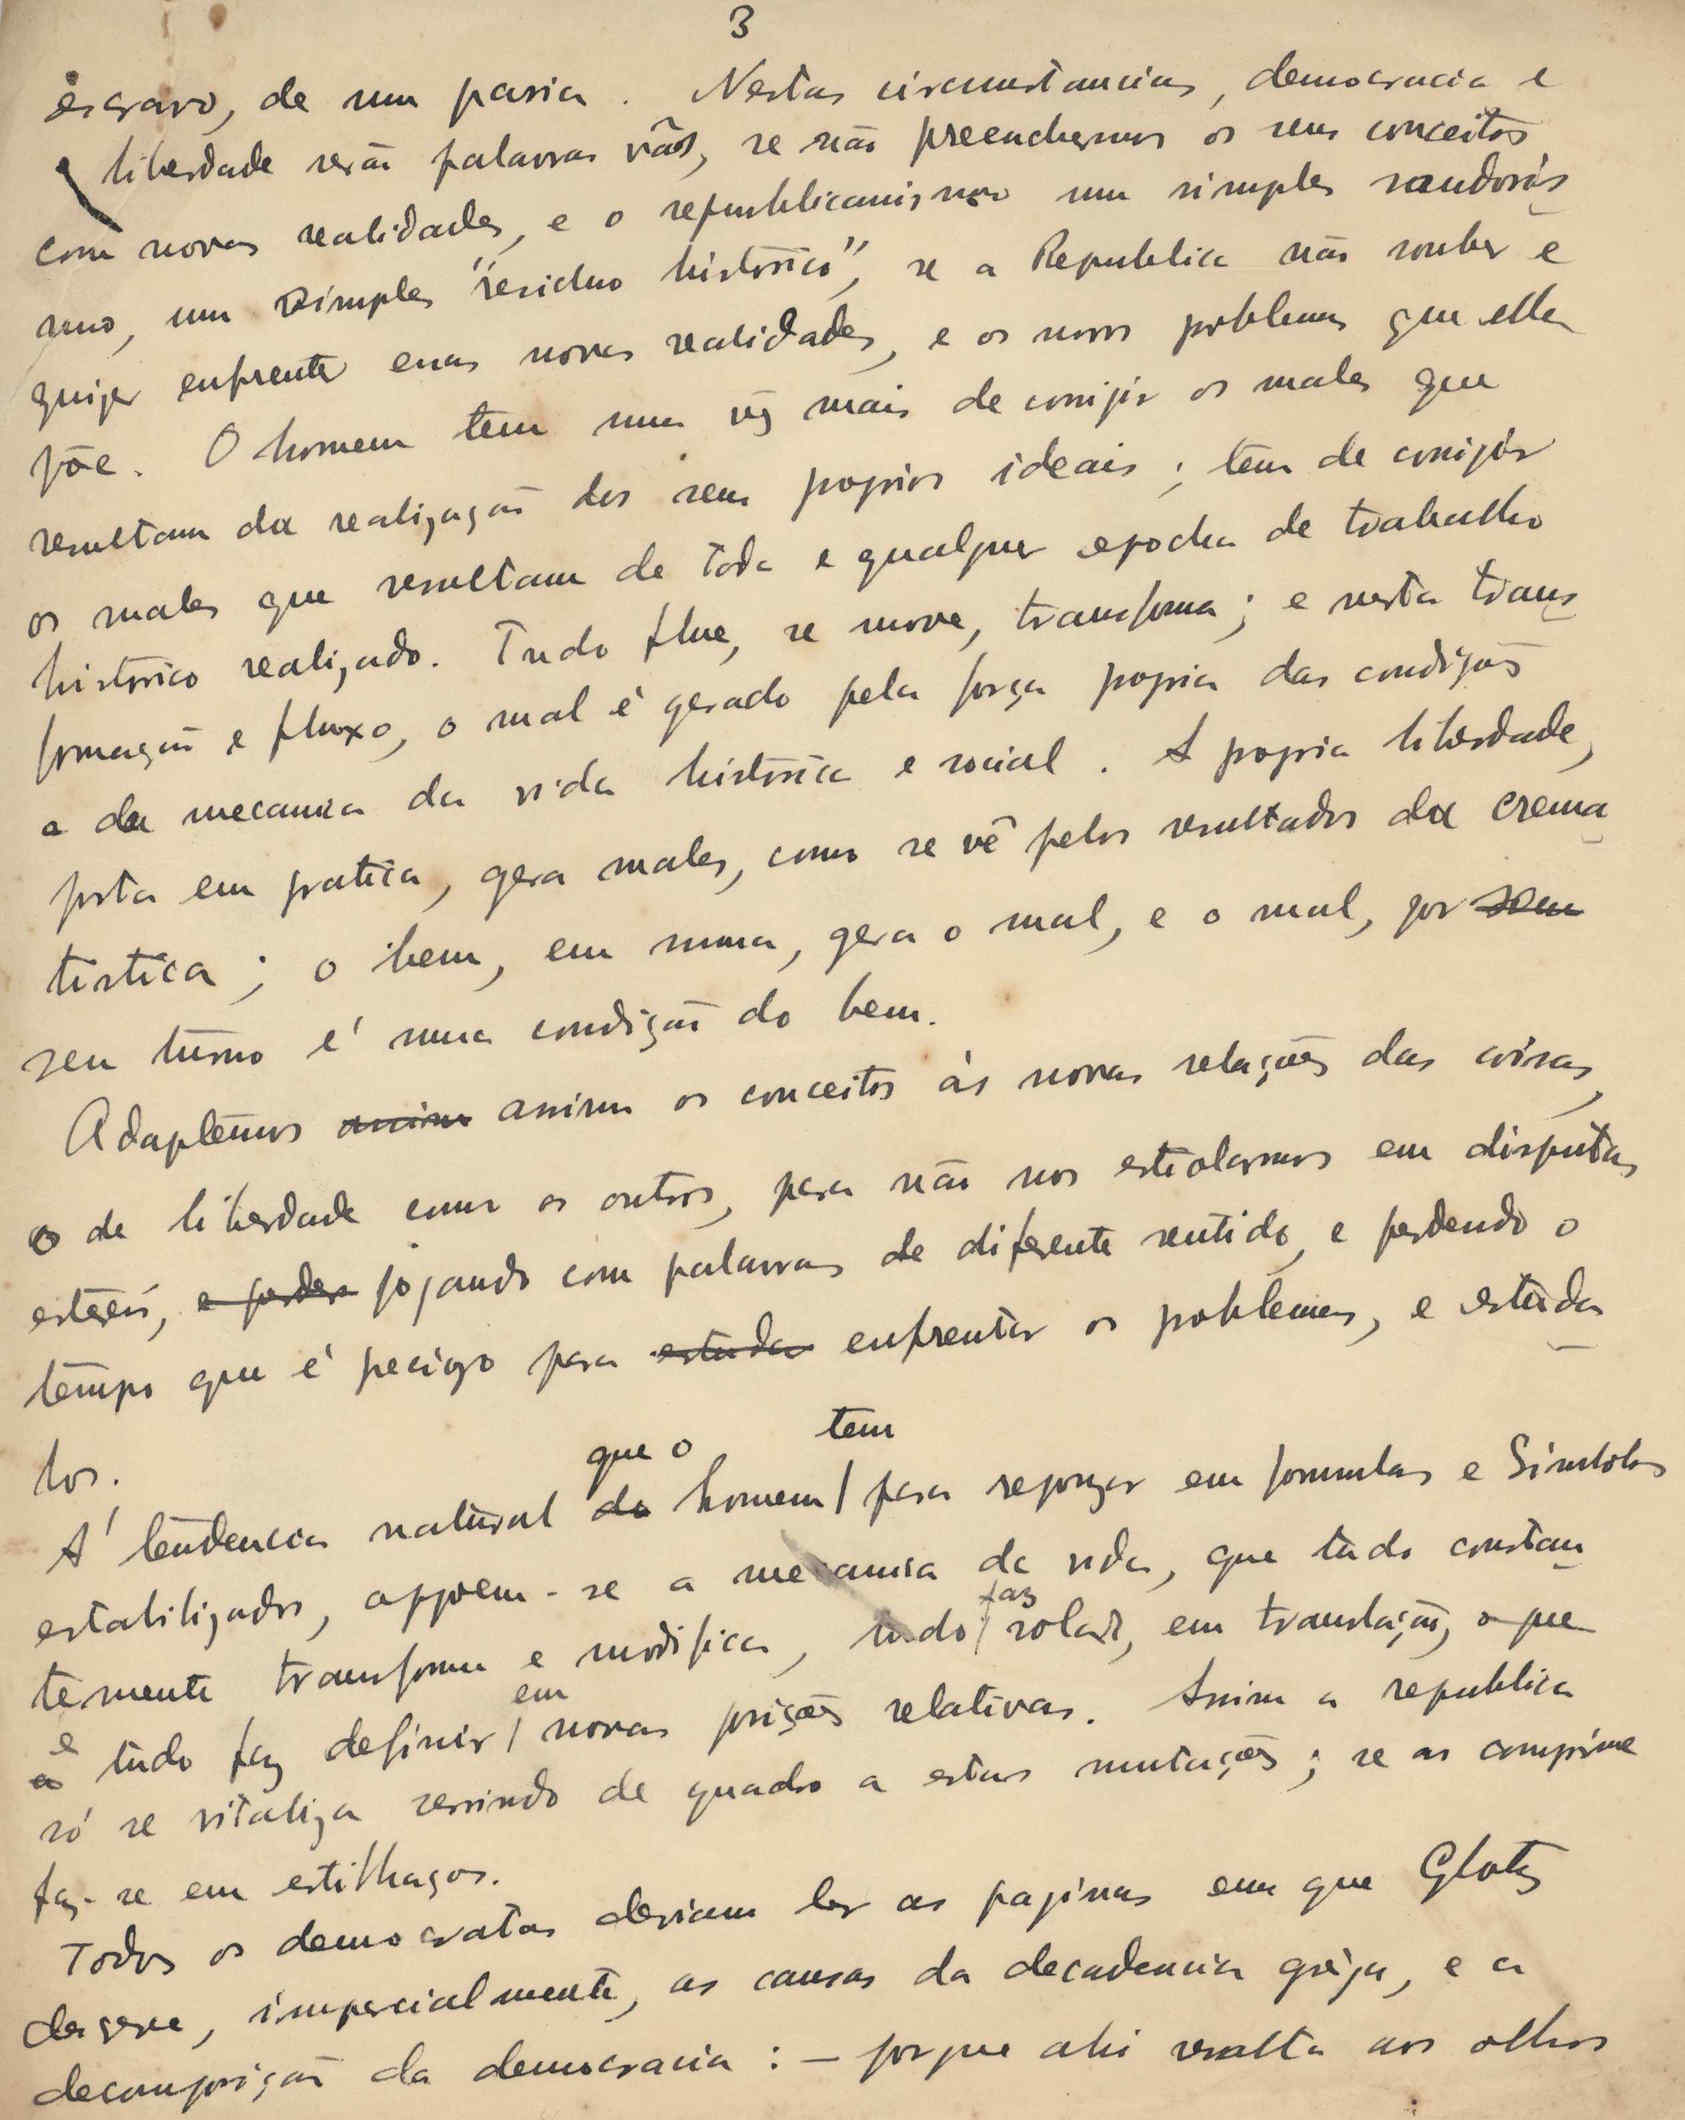 3
escravo, de um paria. Nestas circunstancias, democracia e
liberdade serão palavras vãs, se não preenchermos os seus conceitos
com novas realidades, e o republicanismo um simples saudosis
mo, um simples "residuo historico", se a Republica não souber e
quizer enfrentar essas novas realidades, e os novos problemas que ella
põe. O homem tem uma vez mais de corrigir os males que
resultam da realização dos seus proprios ideais; tem de corrigir
os males que resultam de toda e qualquer epocha de trabalho
historico realizado. Tudo flue, se move, transforma; e nesta trans
formação e fluxo, o mal é gerado pela força propria das condições
e da mecanica da vida historica e social. A propria liberdade,
posta em pratica, gera males, como se vê pelos resultados da crema
tistica; o bem, em suma, gera o mal, e o mal, por sem
seu turno é uma condição do bem.
Adaptemos assim assim os conceitos ás novas relações das coisas,
o de liberdade como os outros, para não nos estiolarmos em disputas
estereis, e perder jogando com palavras de diferente sentido, e perdendo o
tempo que é preciso para estudar enfrentar os problemas, e estuda
los.
que o tem
A' tendencia natural do homem para repouzar em formulas e Simbolos
estabilizados, oppoem-se a mecanica da vida, que tudo constan
temente transforma e modifica, tudo faz rolar, em translação, o que
e tudo faz definir em novas posições relativas. Assim a republica
só se vitaliza servindo de quadro a estas mutações; se as comprime
faz-se em estilhaços.
Todos os democratas deviam ler as paginas em que Glotz
descreve, imparcialmente, as causas da decadencia grega, e a
decomposição da democracia: — porque ahi resalta aos olhos